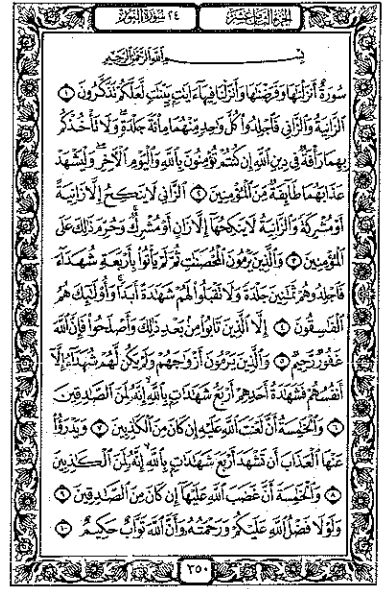 الجزء الثامن عشر
٢٤ سورة النور
بسم الله الرحمن الرحيم
سُورَةٌ أَنزَلْنَٰهَا وَفَرَضْنَٰهَا وَأَنزَلْنَا فِيهَآ ءَايَٰتٍۭ بَيِّنَٰتٍ لَّعَلَّكُمْ تَذَكَّرُونَ ١
ٱلزَّانِيَةُ وَٱلزَّانِى فَٱجْلِدُوا۟ كُلَّ وَٰحِدٍ مِّنْهُمَا مِا۟ئَةَ جَلْدَةٍ وَلَا تَأْخُذْكُم
بِهِمَا رَأْفَةٌ فِى دِينِ ٱللَّهِ إِن كُنتُمْ تُؤْمِنُونَ بِٱللَّهِ وَٱلْيَوْمِ ٱلْـَٔاخِرِ وَلْيَشْهَدْ
عَذَابَهُمَا طَآئِفَةٌ مِّنَ ٱلْمُؤْمِنِينَ ٢ ٱلزَّانِى لَا يَنكِحُ إِلَّا زَانِيَةً
أَوْ مُشْرِكَةً وَٱلزَّانِيَةُ لَا يَنكِحُهَآ إِلَّا زَانٍ أَوْ مُشْرِكٌ وَحُرِّمَ ذَٰلِكَ عَلَى
ٱلْمُؤْمِنِينَ ٣ وَٱلَّذِينَ يَرْمُونَ ٱلْمُحْصَنَٰتِ ثُمَّ لَمْ يَأْتُوا۟ بِأَرْبَعَةِ شُهَدَآءَ
فَٱجْلِدُوهُمْ ثَمَٰنِينَ جَلْدَةً وَلَا تَقْبَلُوا۟ لَهُمْ شَهَٰدَةً أَبَدًا وَأُو۟لَٰٓئِكَ هُمُ
ٱلْفَٰسِقُونَ ٤ إِلَّا ٱلَّذِينَ تَابُوا۟ مِنۢ بَعْدِ ذَٰلِكَ وَأَصْلَحُوا۟ فَإِنَّ ٱللَّهَ
غَفُورٌ رَّحِيمٌ ٥ وَٱلَّذِينَ يَرْمُونَ أَزْوَٰجَهُمْ وَلَمْ يَكُن لَّهُمْ شُهَدَآءُ إِلَّآ
أَنفُسُهُمْ فَشَهَٰدَةُ أَحَدِهِمْ أَرْبَعُ شَهَٰدَٰتٍۭ بِٱللَّهِ إِنَّهُۥ لَمِنَ ٱلصَّٰدِقِينَ
٦ وَٱلْخَٰمِسَةُ أَنَّ لَعْنَتَ ٱللَّهِ عَلَيْهِ إِن كَانَ مِنَ ٱلْكَٰذِبِينَ ٧ وَيَدْرَؤُا۟
عَنْهَا ٱلْعَذَابَ أَن تَشْهَدَ أَرْبَعَ شَهَٰدَٰتٍۭ بِٱللَّهِ إِنَّهُۥ لَمِنَ ٱلْكَٰذِبِينَ
٨ وَٱلْخَٰمِسَةَ أَنَّ غَضَبَ ٱللَّهِ عَلَيْهَآ إِن كَانَ مِنَ ٱلصَّٰدِقِينَ ٩
وَلَوْلَا فَضْلُ ٱللَّهِ عَلَيْكُمْ وَرَحْمَتُهُۥ وَأَنَّ ٱللَّهَ تَوَّابٌ حَكِيمٌ ١٠
٣٥٠